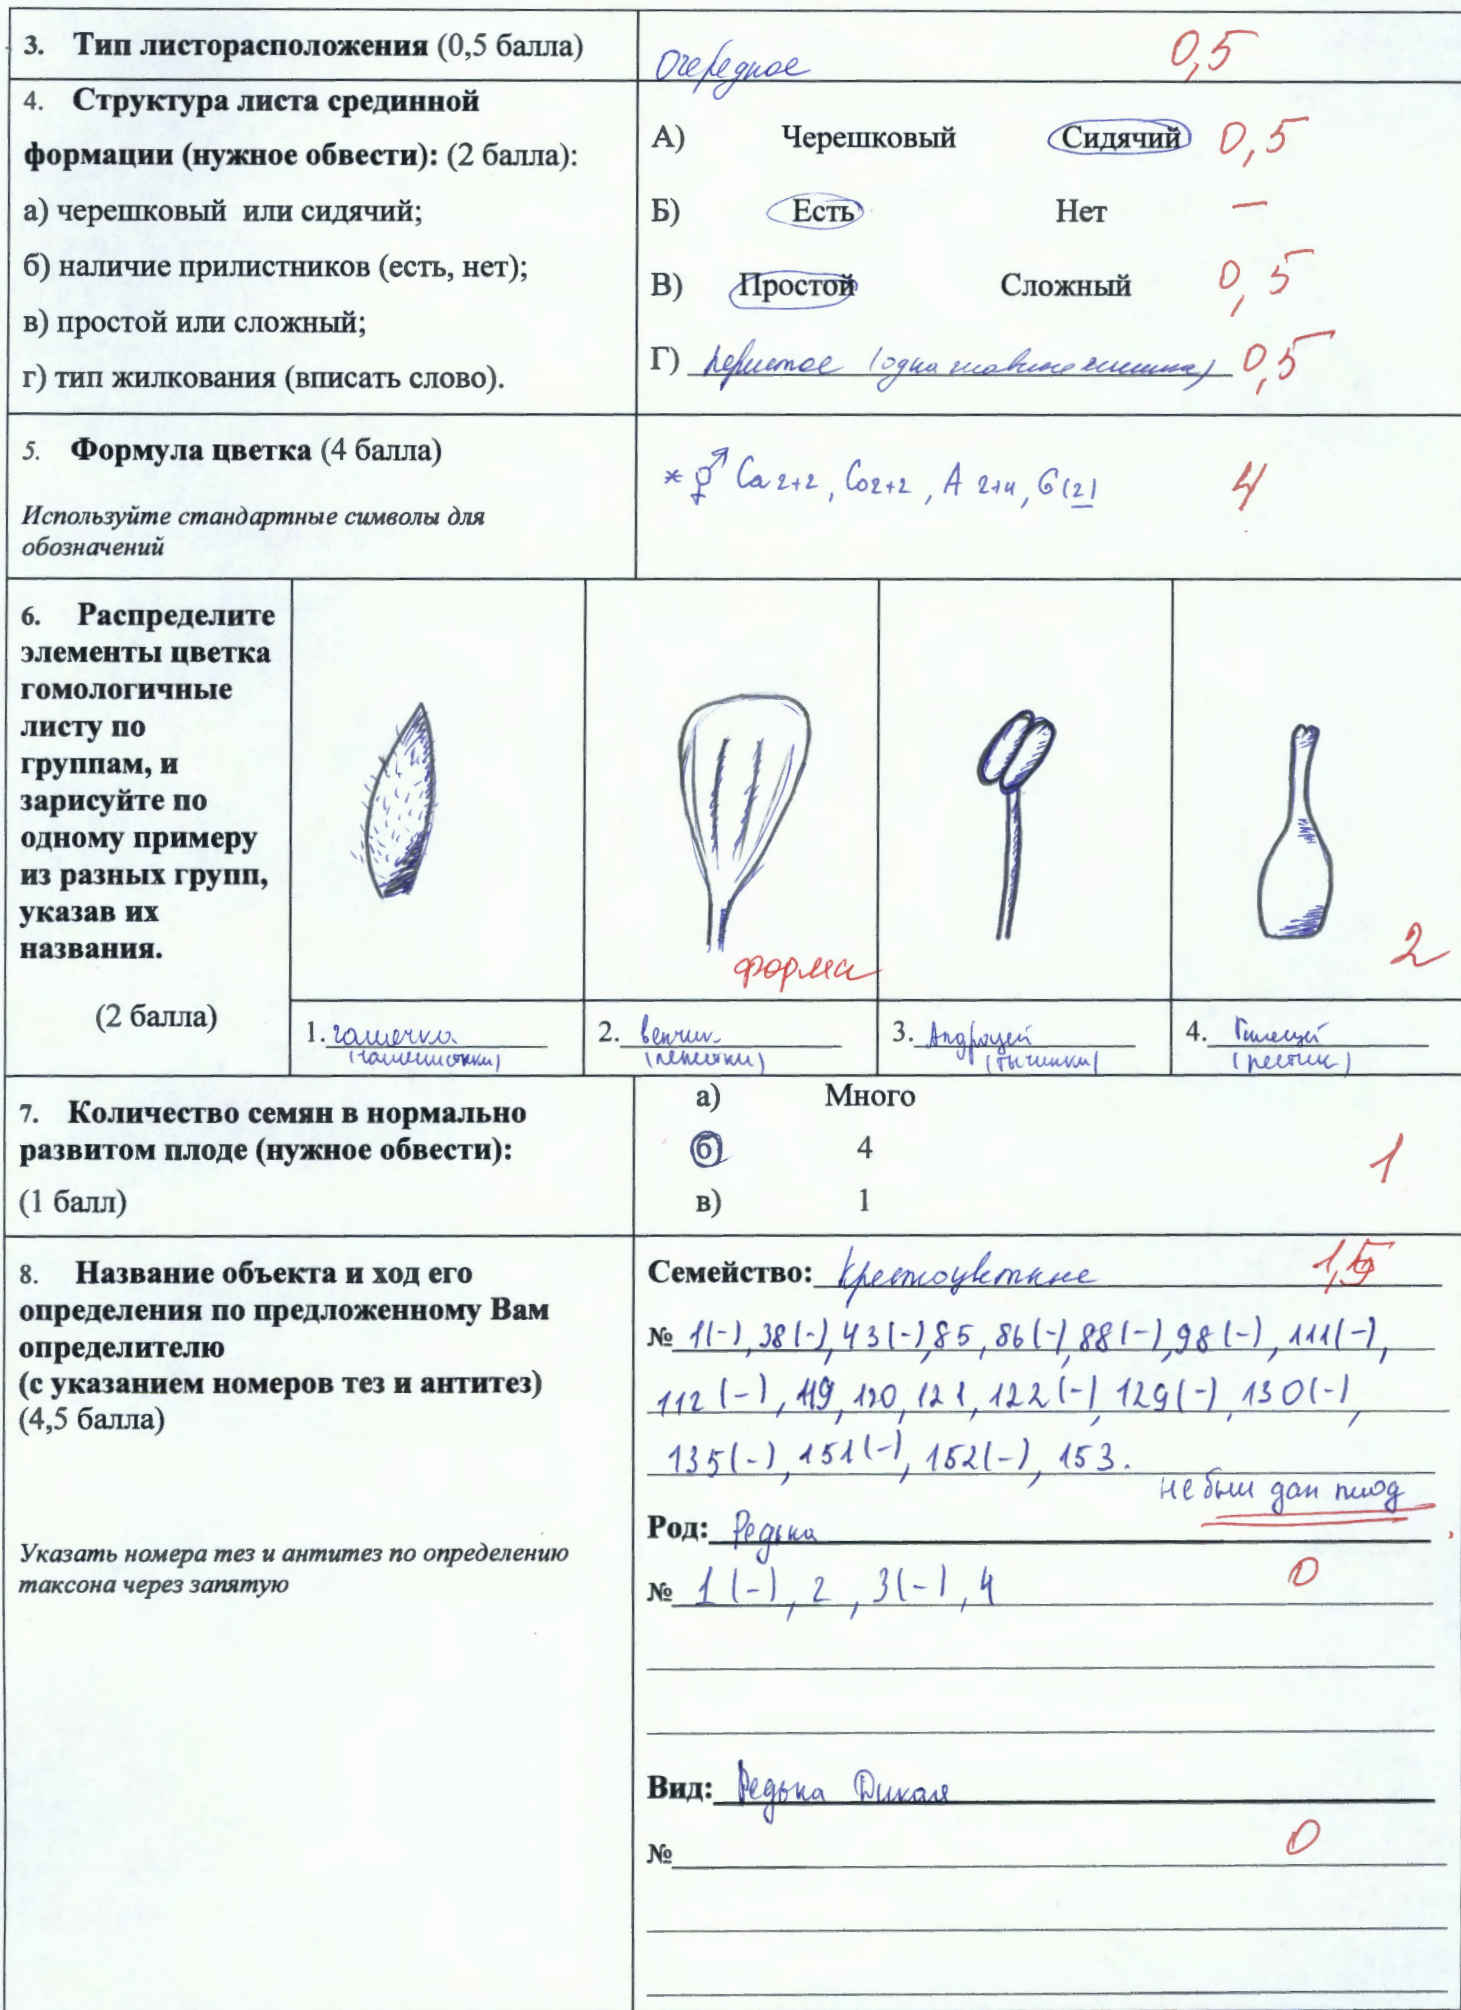 3. Тип листорасположения (0,5 балла)
Очередное 0,5
4. Структура листа срединной
формации (нужное обвести): (2 балла):
а) черешковый или сидячий;
б) наличие прилистников (есть, нет);
в) простой или сложный;
г) тип жилкования (вписать слово).
А) Черешковый Сидячий 0,5
Б) Есть Нет —
В) Простой Сложный 0,5
Г) перистое (одна главная жилка) 0,5
5. Формула цветка (4 балла)
Используйте стандартные символы для
обозначений
* ⚥ Ca 2+2, Co 2+2, A 2+4, G (2) 4
6. Распределите
элементы цветка
гомологичные
листу по
группам, и
зарисуйте по
одному примеру
из разных групп,
указав их
названия.
(2 балла)
форма
2
1. чашечка
(чашелистики)
2. венчик
(лепестки)
3. Андроцей
(тычинки)
4. Гинецей
(пестик)
7. Количество семян в нормально
развитом плоде (нужное обвести):
(1 балл)
а) Много
б) 4
в) 1
1
8. Название объекта и ход его
определения по предложенному Вам
определителю
(с указанием номеров тез и антитез)
(4,5 балла)
Указать номера тез и антитез по определению
таксона через запятую
Семейство: Крестоцветные 1,5
№ 1(-), 38(-), 43(-), 85, 86(-), 88(-), 98(-), 111(-),
112(-), 119, 120, 121, 122(-), 129(-), 130(-),
135(-), 151(-), 152(-), 153.
не был дан плод
Род: Редька
№ 1(-), 2, 3(-), 4 0
Вид: Редька Дикая
№ 0